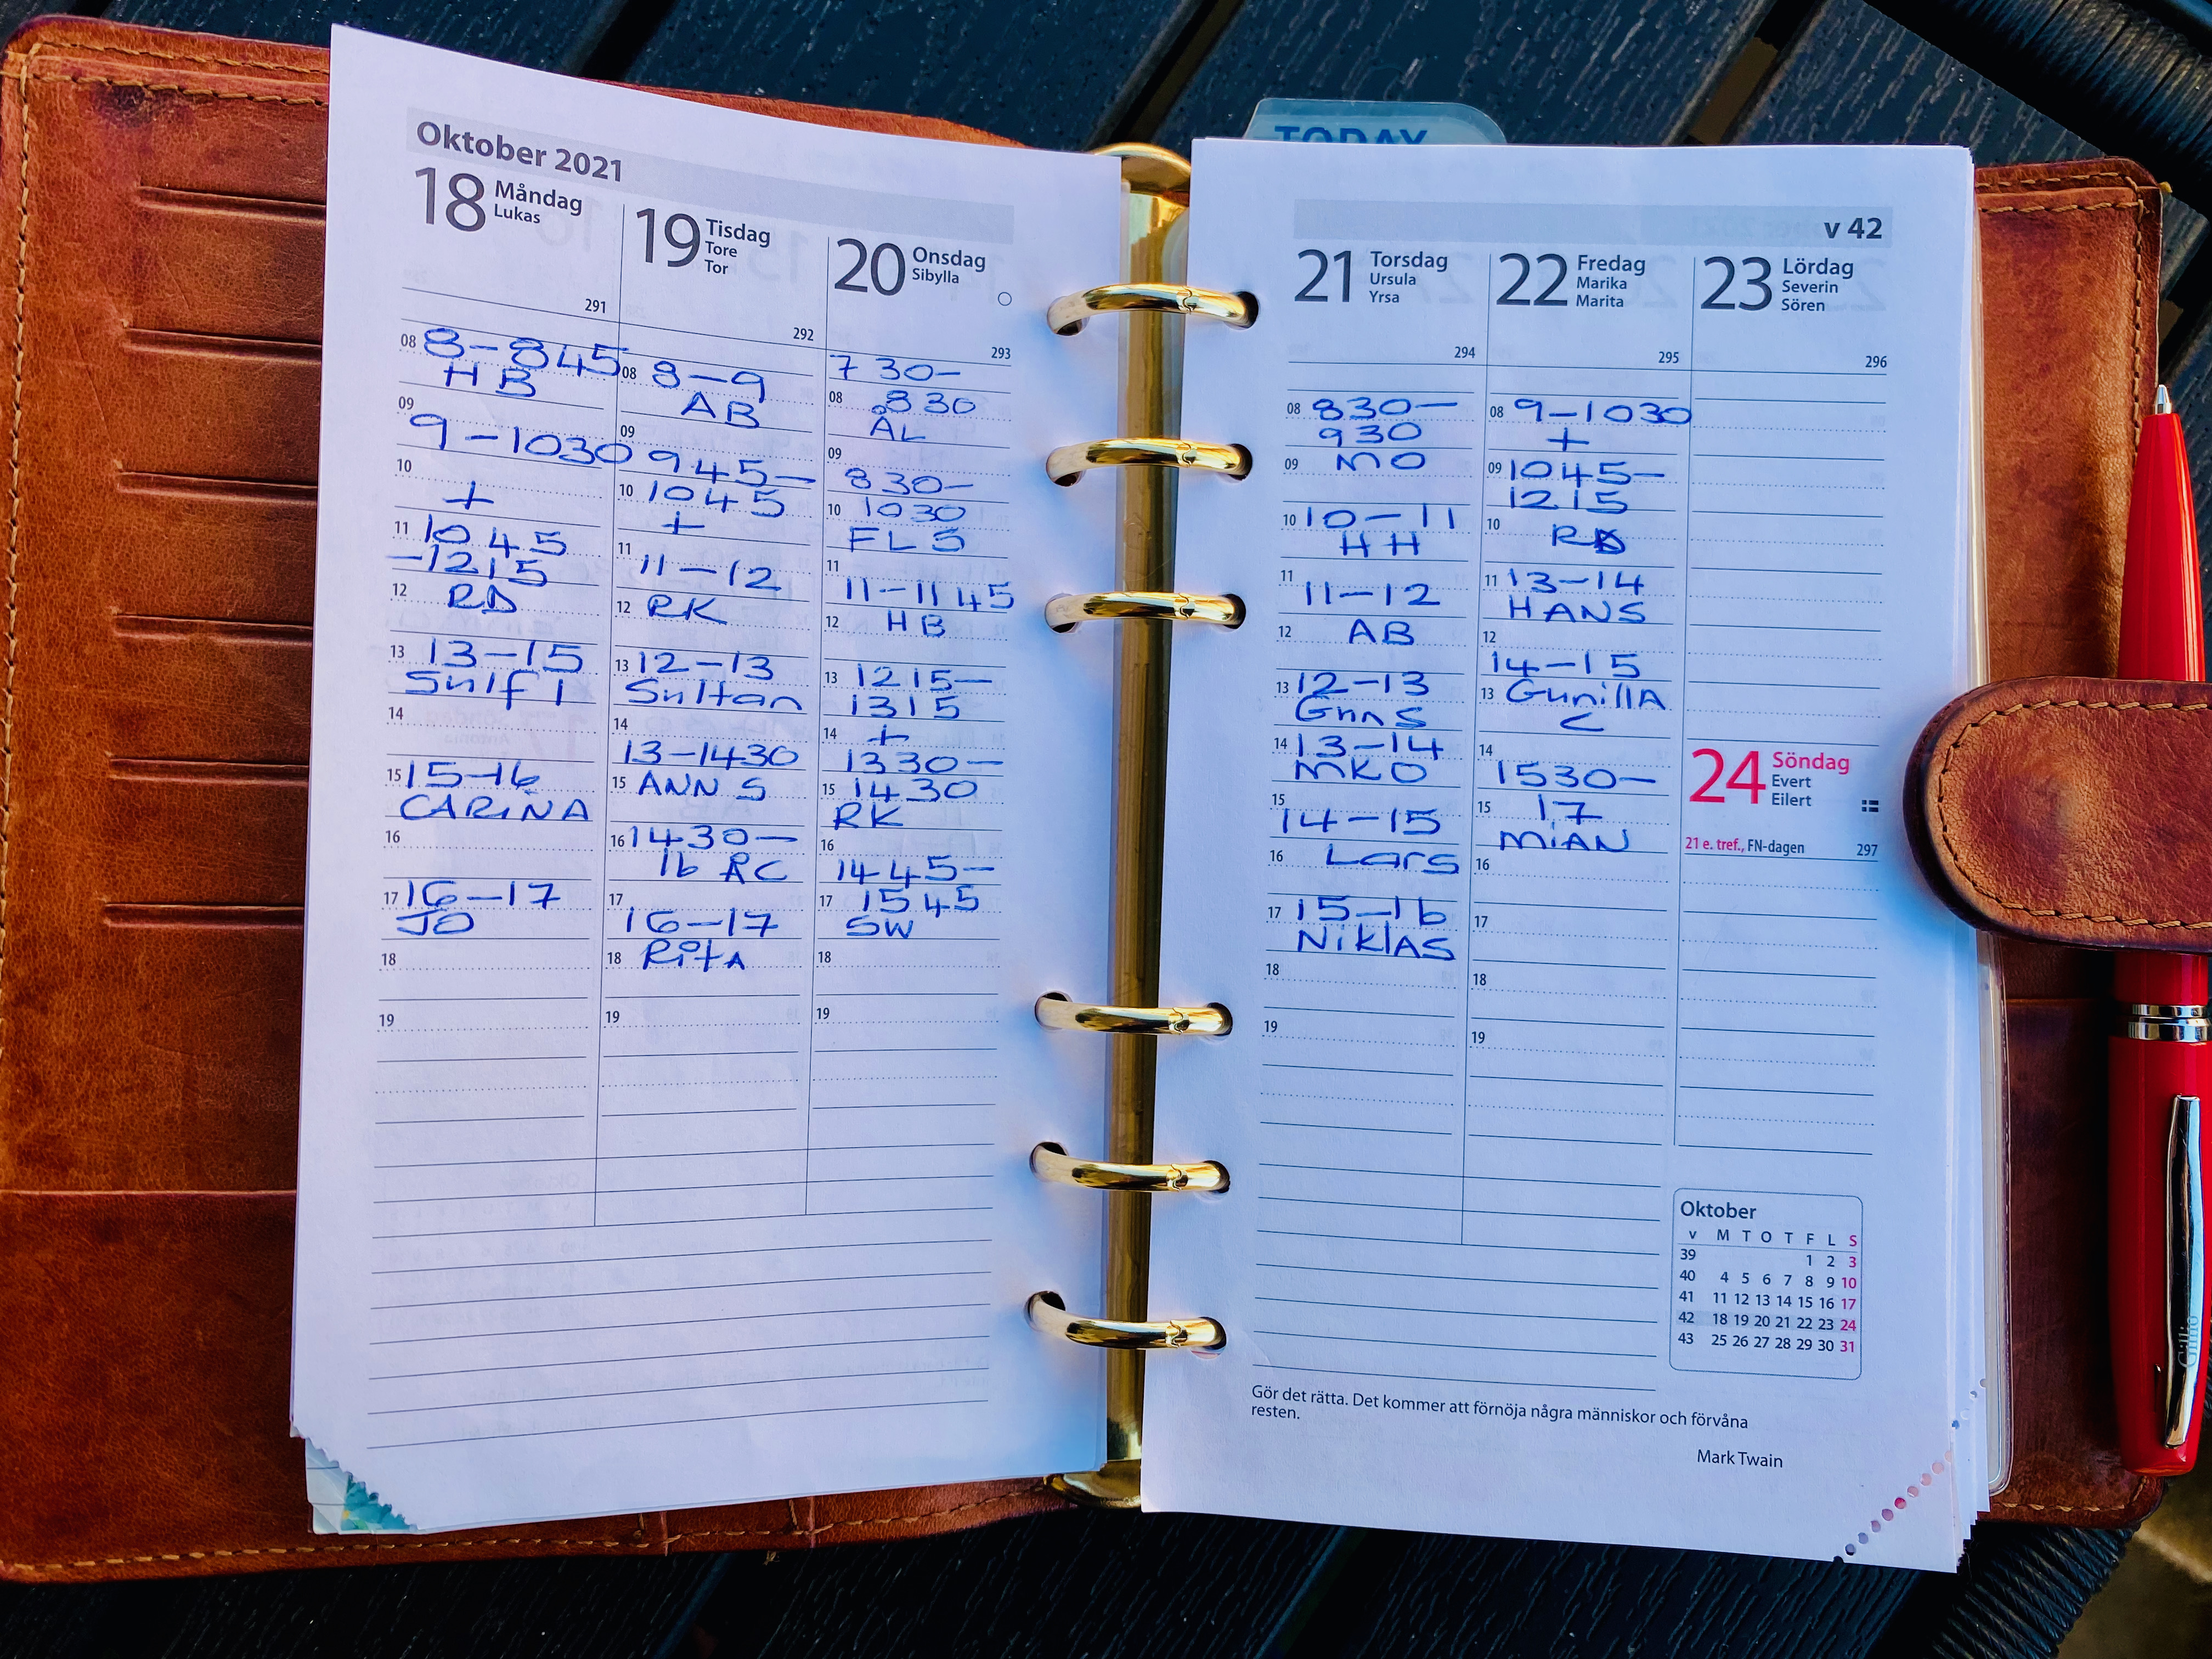 TODAY
Oktober 2021
18 Måndag
Lukas
291
08 8-845
HB
09
9-1030
10
+
11 1045
-1215
12 RD
13 13-15
14
15 15-16
CARiNA
16
17 16-17
JO
18
19
19 Tisdag
Tore
Tor
292
08 8-9
AB
09
945-
10 1045
+
11
11-12
12 RK
13 12-13
Sultan
14
13-1430
15 ANN S
16 1430-
16 RC
17
16-17
18 RitA
19
20 Onsdag
Sibylla
293
730-
08 830
ÅL
09
830-
10 1030
FLS
11
11-1145
12 HB
13 1215-
1315
14 +
1330-
15 1430
RK
16
1445-
17 1545
SW
18
19
v 42
21 Torsdag
Ursula
Yrsa
294
08 830-
930
09 MO
10 10-11
HH
11
11-12
12 AB
13 12-13
14 13-14
MKO
15
14-15
16 Lars
17 15-16
NiklAS
18
19
22 Fredag
Marika
Marita
295
08 9-1030
+
09 1045-
1215
10
11 13-14
HANS
12
14-15
13 GunillA
C
14
1530-
15 17
MiAN
16
17
18
19
23 Lördag
Severin
Sören
296
24 Söndag
Evert
Eilert
21 e. tref., FN-dagen 297
Oktober
v M T O T F L S
39 1 2 3
40 4 5 6 7 8 9 10
41 11 12 13 14 15 16 17
42 18 19 20 21 22 23 24
43 25 26 27 28 29 30 31
Gör det rätta. Det kommer att förnöja några människor och förvåna
resten.
Mark Twain
Gillio